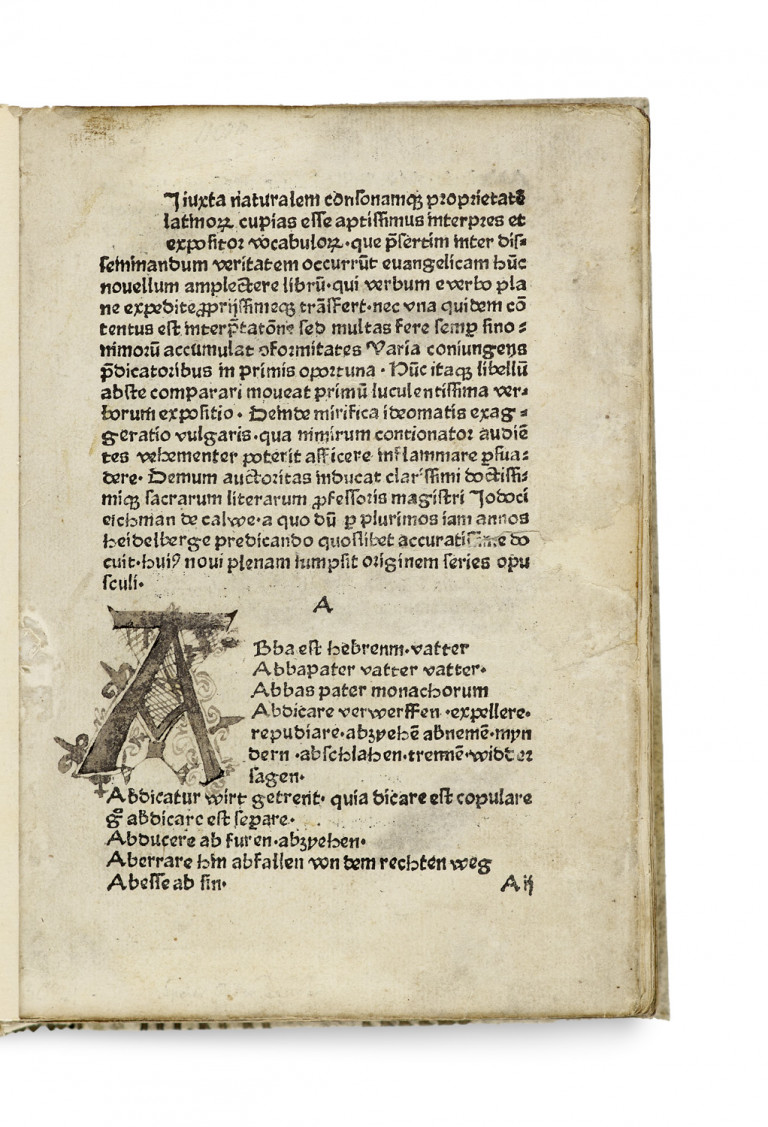 I iuxta naturalem consonamqꝫ proprietatē
latinoꝝ cupias esse aptissimus interpres et
expositor vocabuloꝝ·que p̄sertim inter dis⸗
seminandum veritatem occurrūt euangelicam hūc
nouellum amplectere librū·qui verbum e verbo pla
ne expedite ꝓprijssimeqꝫ trāsfert·nec vna quidem cō
tentus est interp̄tatōne sed multas fere semꝑ sino⸗
nimorū accumulat ꝯformitates Varia coniungens
p̄dicatoribus in primis oportuna· Hūc itaqꝫ libellū
abste comparari moueat primū luculentissima ver⸗
borum expositio· Deinde mirifica ideomatis exag⸗
geratio vulgaris·qua nimirum contionator audiē
tes vehementer poterit afficere inflammare ꝑsua⸗
dere· Demum auctoritas inducat clarissimi doctissi⸗
miqꝫ sacrarum literarum ꝓfessoris magistri Jodoci
eichman de calwe·a quo dū ꝑ plurimos iam annos
heidelberge predicando quoslibet accuratissime do
cuit·huiꝰ noui plenam sumpsit originem series opu
sculi·
A
ABba est hebreum·vatter
Abbapater vatter vatter·
Abbas pater monachorum
Abdicare verwerffen·expellere·
repudiare·abzyehē abnemē·myn
dern·abschlahen·trennē·widder
sagen·
Abdicatur wirt getrent· quia dicare est copulare
gͦ abdicare est seꝑare·
Abducere ab furen·abzyehen·
Aberrare hin abfallen von dem rechten weg
Abesse ab sin·
A ij